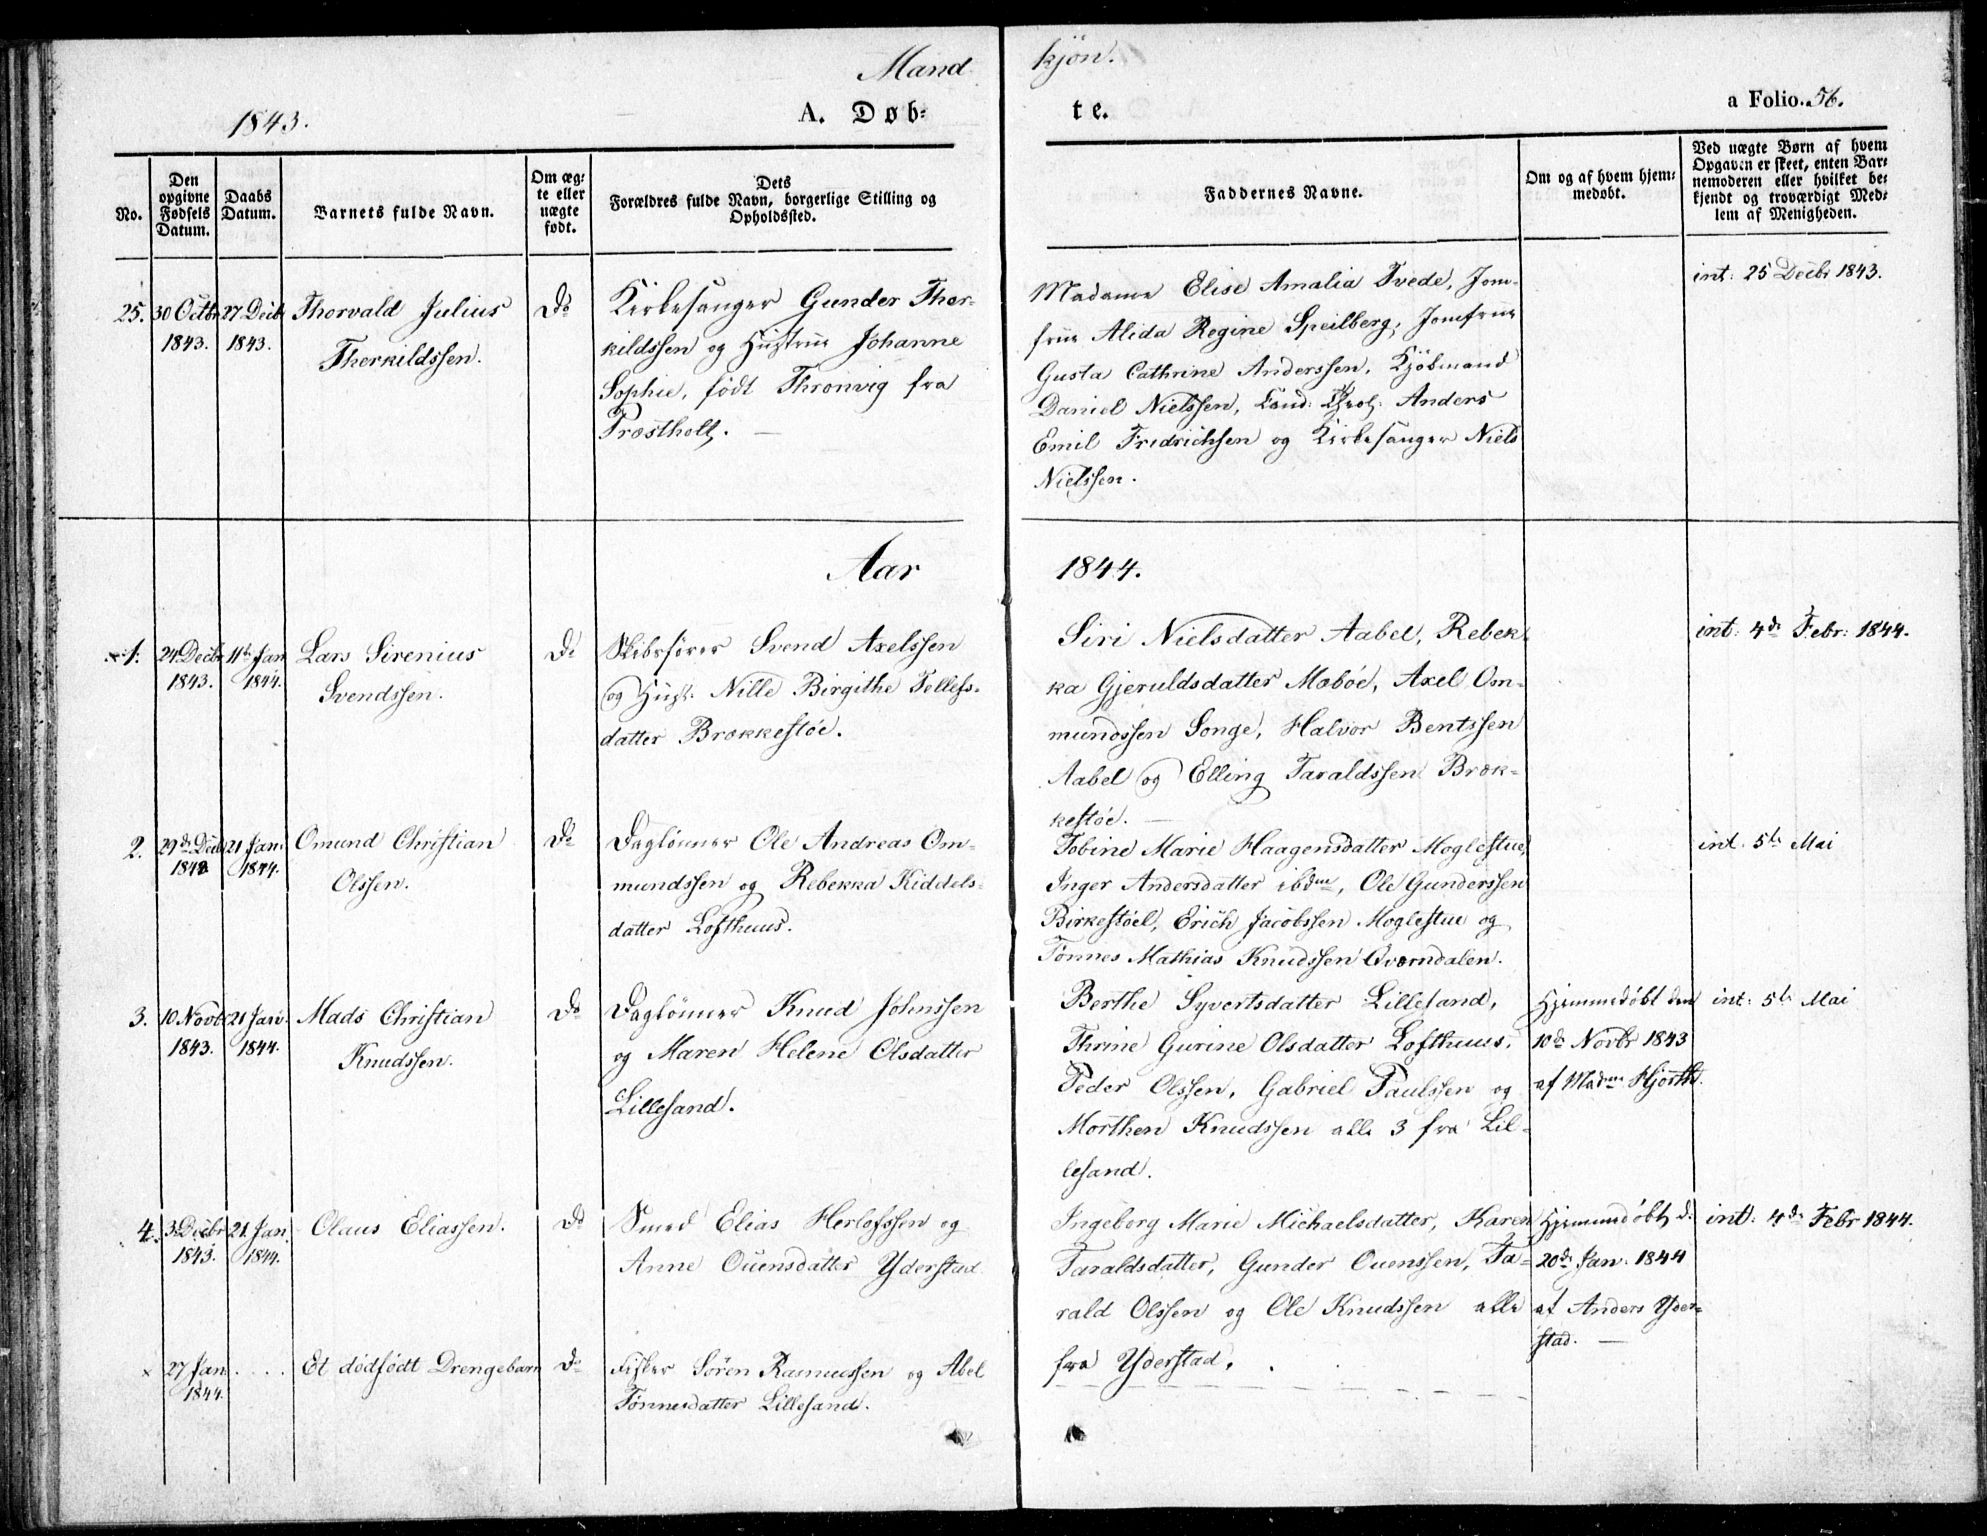 Mand kjön.
1843. A. Døb= te. a Folio. 56.
No.
Den opgivne Fødsels Datum.
Daabs Datum.
Barnets fulde Navn.
Om æg= te eller uægte født.
Dets Forældres fulde Navn, borgerlige Stilling og Opholdssted.
Faddernes Navne.
Om og af hvem hjem= medøbt.
Ved uægte Børn af hvem Opgaven er skeet, enten Bar= nemoderen eller hvilket be= kjendt og troværdigt Med= lem af Menigheden.
25. 30 Octbr 1843. 27 Decbr 1843.
Thorvald Julius
Thorkildssen.
Do
Kirkesanger Gunder Thor-
kildssen og Hustrue Johanne
Sophie, født Thronvig fra
Præstholt. —
Madame Elise Amalia Tvede, Jom-
frue Alida Regine Speilberg, Jomfrue
Gusta Cathrine Anderssen, Kjøbmand
Daniel Nielssen, Cand: Theol: Anders
Emil Fredrichsen og Kirkesanger Niels
Nielssen.
int: 25 Decbr 1843.
Aar 1844.
× 1. 24 Decbr 1843. 11te Jan 1844.
Lars Sirenius
Svendssen.
Do
Skibsfører Svend Axelssen
og Hust. Nille Birgithe Tellefs-
datter Brækkestøe.
Siri Nielsdatter Aabel, Rebek-
ka Gjeruldsdatter Mæbøe, Axel Om-
mundssen Songe, Halvor Bentssen
Aabel og Elling Taraldssen Bræk-
kestøe. —
int: 4de Febr: 1844.
2. 29de Decbr 1843 21 Jan. 1844.
Omund Christian
Olssen.
Do
Daglønner Ole Andreas Om-
mundssen og Rebekka Kiddels-
datter Lofthuus.
Tobine Marie Haagensdatter Moglestue,
Inger Andersdatter ibdm, Ole Gunderssen
Birkestøel, Erich Jacobssen Moglestue og
Tønnes Mathias Knudssen Qværndalen.
int. 5te Mai
3. 10 Novbr 1843. 21 Jan. 1844.
Mads Christian
Knudssen.
Do
Daglønner Knud Johnssen
og Maren Helene Olsdatter
Lillesand.
Berthe Syvertsdatter Lillesand,
Thrine Gurine Olsdatter Lofthuus,
Peder Olssen, Gabriel Paulssen og
Morthen Knudssen alle 3 fra Lil-
lesand.
Hjemmedøbt den
10de Novbr 1843
af Madme Hjorth.
int: 5te Mai
4. 3 Decbr 1843. 21 Jan. 1844.
Olaus Eliassen.
Do
Smed Elias Herlofssen og
Anne Ouensdatter Yderstad
Ingeborg Marie Michaelsdatter, Karen
Taraldsdatter, Gunder Ouenssen, Ta-
rald Olssen og Ole Knudssen alle
fra Yderstad.
Hjemmedøbt d.
20de Jan. 1844
af Anders Yder-
stad. —
int: 4de Febr 1844.
× 27 Jan 1844. . . . .
Et dødfødt Drengebarn
Do
Fisker Søren Rasmussen og Abel
Tønnesdatter Lillesand.